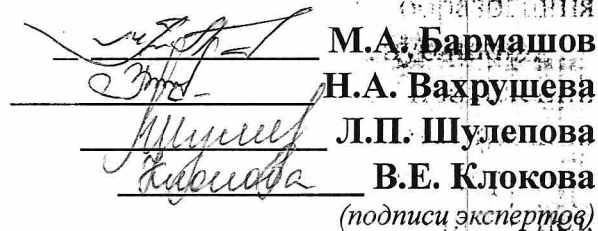 М.А. Бармашов
Н.А. Вахрушева
Л.П. Шулепова
В.Е. Клокова
(подписи экспертов)